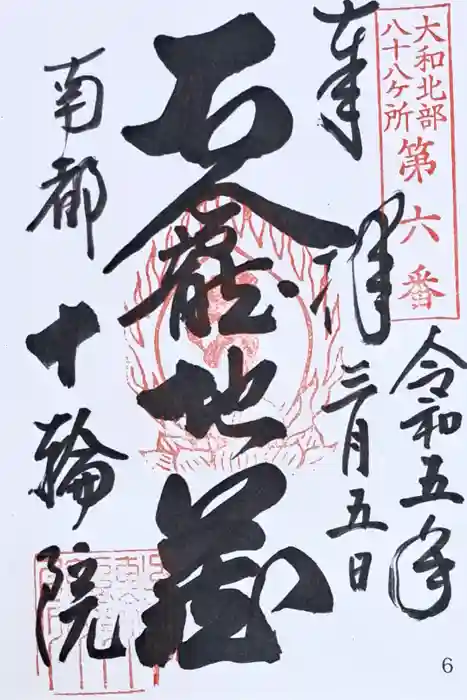 大和北部
八十八ケ所
第六番
奉拝
令和五年
三月五日
石龕地蔵
南都
十輪院
6